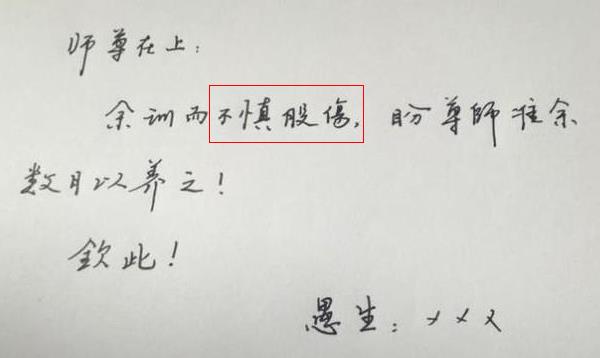 师尊在上：
余训而不慎股傷，盼尊師准余
数月以养之！
欽此！
愚生：×××